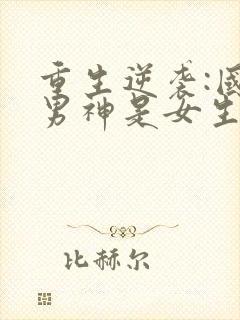 重生逆袭:國
男神是女生
比赫尔